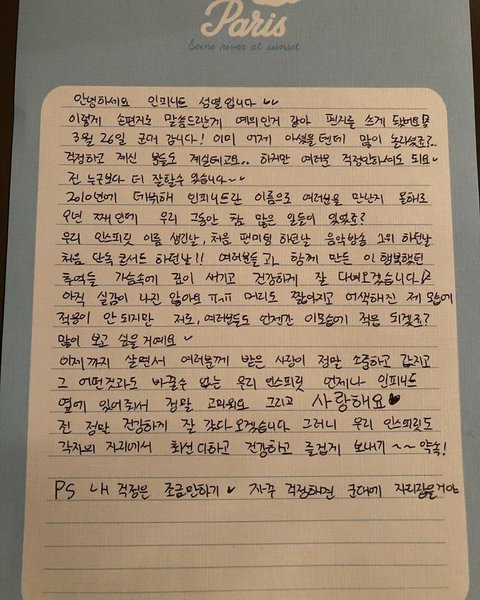 Paris
Seine river at sunset
안녕하세요 인피니트 성열입니다 ♡♡
이렇게 손편지로 말씀드리는게 예의인거 같아 편지를 쓰게 됐어요!
3월 26일 군대 갑니다! 이미 어제 아셨을텐데 많이 놀라셨죠?..
걱정하고 계신 분들도 계실테고요.. 하지만 여러분 걱정안하셔도 되요♡
전 누구보다 더 잘할수 있습니다~
2010년에 데뷔해 인피니트란 이름으로 여러분을 만난지 올해로
9년 째인데 우리 그동안 참 많은 일들이 있었죠?
우리 인스피릿 이름 생긴날, 처음 팬미팅 하던날 음악방송 1위 하던날
처음 단독콘서트 하던날!! 여러분들과 함께 만든 이 행복했던
추억들 가슴속에 깊이 새기고 건강하게 잘 다녀오겠습니다
아직 실감이 나진 않아요 ㅠㅠ 머리도 짧아지고 어색해진 제 모습에
적응이 안 되지만 저도, 여러분들도 언젠간 이모습에 적응 되겠죠?
많이 보고 싶을거예요 ♡
이제까지 살면서 여러분께 받은 사랑이 정말 소중하고 값지고
그 어떤것과도 바꿀수 없는 우리 인스피릿 언제나 인피니트
옆에 있어줘서 정말 고마워요 그리고 사랑해요♥
전 정말 건강하게 잘 갔다오겠습니다 그러니 우리 인스피릿도
각자의 자리에서 최선 다하고 건강하고 즐겁게 보내기~~ 약속!
PS 내 걱정은 조금만하기 ♡ 자꾸 걱정하면 군대에 자리잡을거야